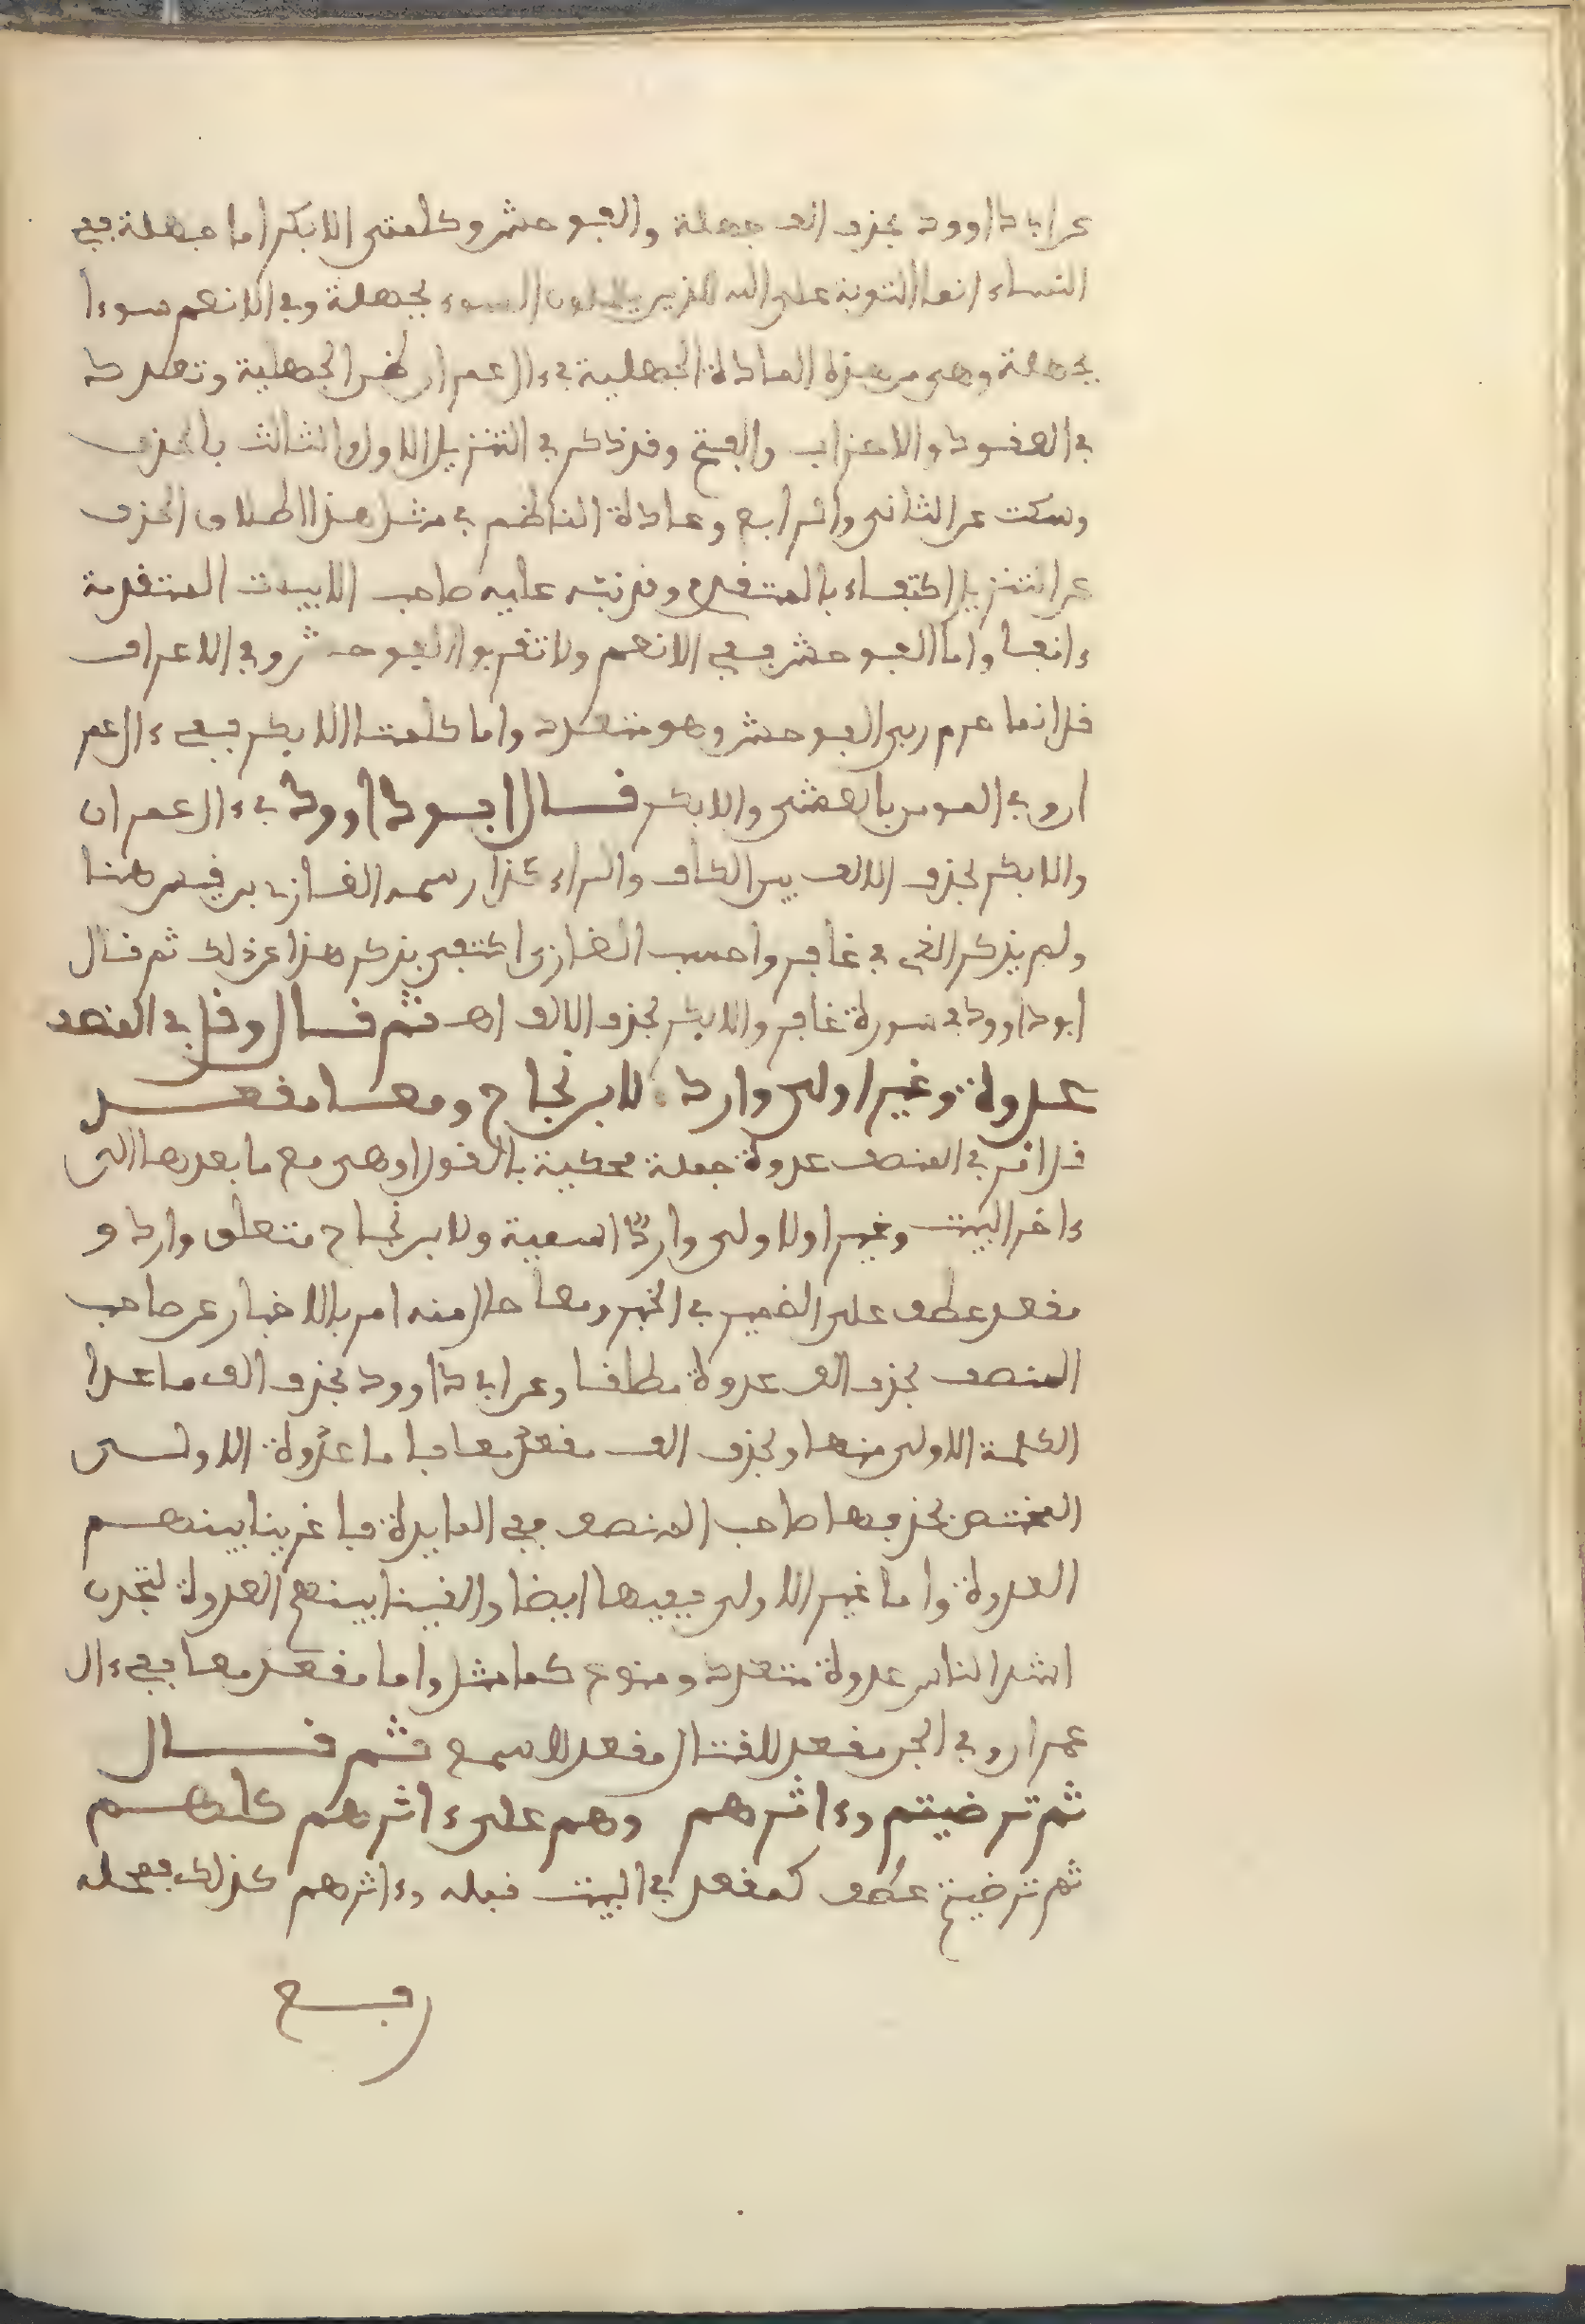 عن ابى داوود بحذف الف جهلة والفوحش وكلمتى الابكر اما جهلة ففى
النساء انما التوبة على الله للذين يعملون السوء بجهلة وفى الانعم سوءا
بجهلة وهى من هذه المادة الجهلية فى ءال عمرن ظن الجهلية وتعدد
فى العقود والاحزاب والفتح وقد ذكر فى التنزيل الاول والثالث بالحذف
وسكت عن الثانى والرابع وعادة الناظم فى مثل هذا اطلاق الحذف
عن التنزيل اكتفاء بالمتقدم وقد نبه عليه صاحب الابيات المتقدمة
ءانفا واما الفوحش ففى الانعم ولا تقربوا الفوحش وفى الاعراف
قل انما حرم ربى الفوحش وهو متعدد واما كلمتا الابكر ففى ءال عمر
ان وفى المومن بالعشى والابكر قال ابو داوود فى ءال عمران
والابكر بحذف الالف بين الكاف والراء كذا رسمه الغازى بن قيس هنا
ولم يذكر الذى فى غافر واحسب الغازى اكتفى بذكر هذا عن ذلك ثم قال
ابو داوود فى سورة غافر والابكر بحذف الالف اهـ ثم قال وقل فى المنصف
عدوة وغير اولى وارد لابن نجاح ومعا مقعد
قل امر فى المنصف عدوة جملة محكية بالقول وهى مع ما بعدها الى
ءاخر البيت وغير اولا ولى وارد اسمية ولابن نجاح متعلق وارد و
مقعد عطف على الضمير فى الخبر ومعا حال منه امر بالاخبار عن صاحب
المنصف بحذف الف عدوة مطلقا وعن ابى داوود بحذف الف ما عدا
الكلمة الاولى منها وبحذف الف مقعد معا فاما عدوة الاولى
المختص بحذفها صاحب المنصف ففى المايدة فاغرينا بينهم
العدوة واما غير الاولى ففيها ايضا والقينا بينهم العدوة لتجدن
اشد الناس عدوة متعدد ومنوع كما مثل واما مقعد معا ففى ءال
عمرن وفى الجن مقعد للقتال مقعد للسمع ثم قال
ثم ترضيتم وءاثرهم وهم على ءاثرهم كلهم
ثم ترضيتم عطف كمقعد فى البيت قبله وءاثرهم كذلك فمحله
رفع